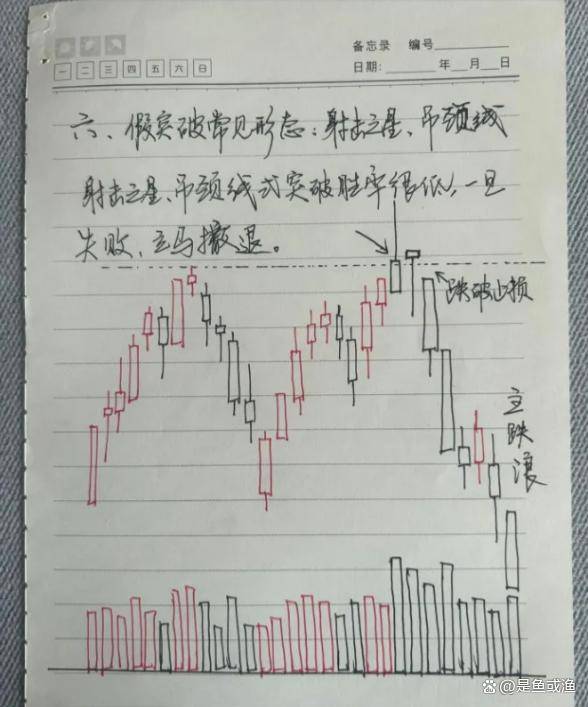 备忘录 编号
一 二 三 四 五 六 日
日期: 年 月 日
六、假突破常见形态:射击之星、吊颈线
射击之星、吊颈线式突破胜率很低,一旦
失败,立马撤退。
跌破止损
主跌浪
@是鱼或渔